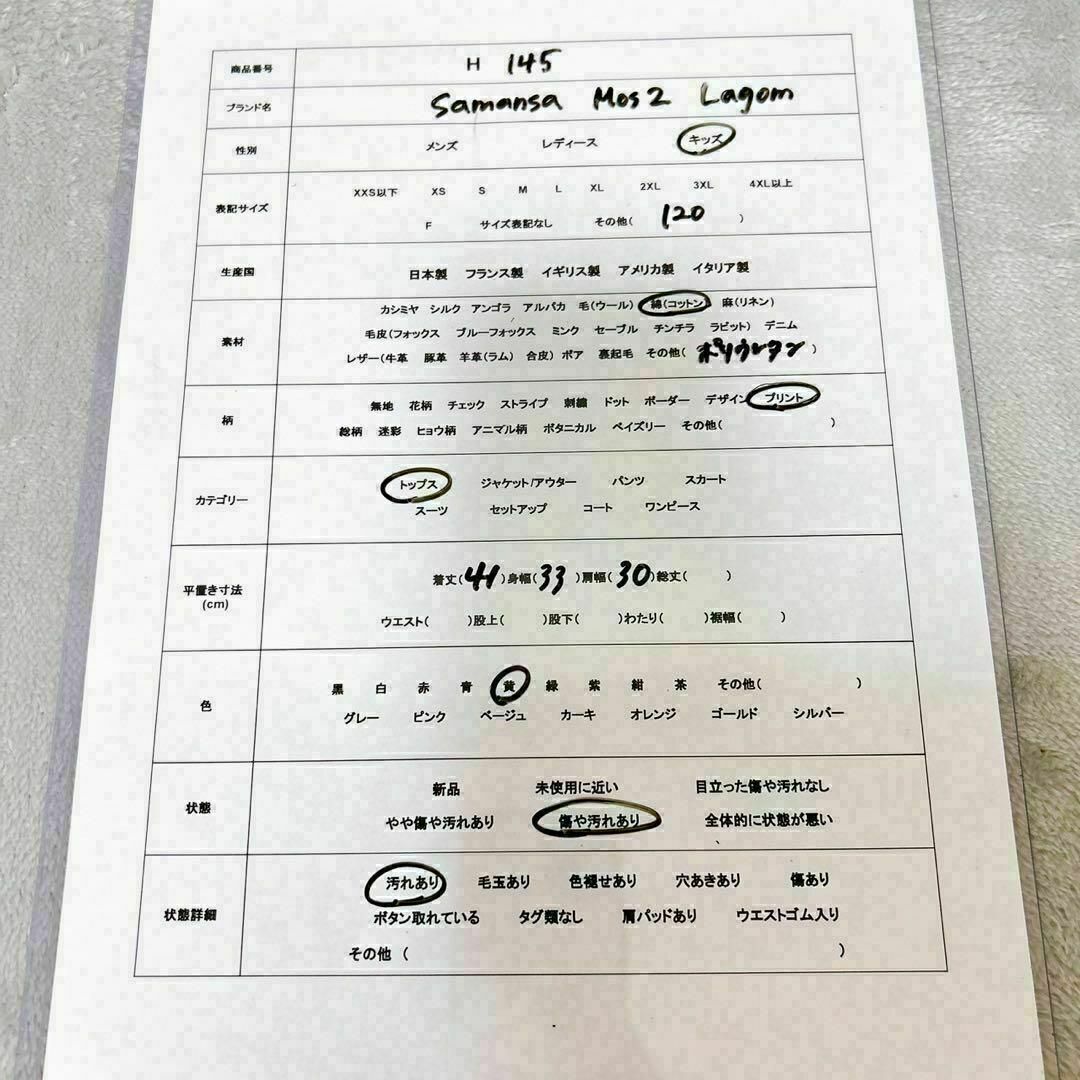 商品番号 H 145
ブランド名 Samansa Mos2 Lagom
性別 メンズ レディース キッズ
表記サイズ XXS以下 XS S M L XL 2XL 3XL 4XL以上
F サイズ表記なし その他( 120 )
生産国 日本製 フランス製 イギリス製 アメリカ製 イタリア製
素材 カシミヤ シルク アンゴラ アルパカ 毛(ウール) 綿(コットン) 麻(リネン)
毛皮(フォックス ブルーフォックス ミンク セーブル チンチラ ラビット) デニム
レザー(牛革 豚革 羊革(ラム) 合皮) ボア 裏起毛 その他( ポリウレタン )
柄 無地 花柄 チェック ストライプ 刺繍 ドット ボーダー デザイン プリント
総柄 迷彩 ヒョウ柄 アニマル柄 ボタニカル ペイズリー その他( )
カテゴリー トップス ジャケット/アウター パンツ スカート
スーツ セットアップ コート ワンピース
平置き寸法 (cm) 着丈( 41 )身幅( 33 )肩幅( 30 )総丈( )
ウエスト( )股上( )股下( )わたり( )裾幅( )
色 黒 白 赤 青 黄 緑 紫 紺 茶 その他( )
グレー ピンク ベージュ カーキ オレンジ ゴールド シルバー
状態 新品 未使用に近い 目立った傷や汚れなし
やや傷や汚れあり 傷や汚れあり 全体的に状態が悪い
状態詳細 汚れあり 毛玉あり 色褪せあり 穴あきあり 傷あり
ボタン取れている タグ類なし 肩パッドあり ウエストゴム入り
その他 ( )